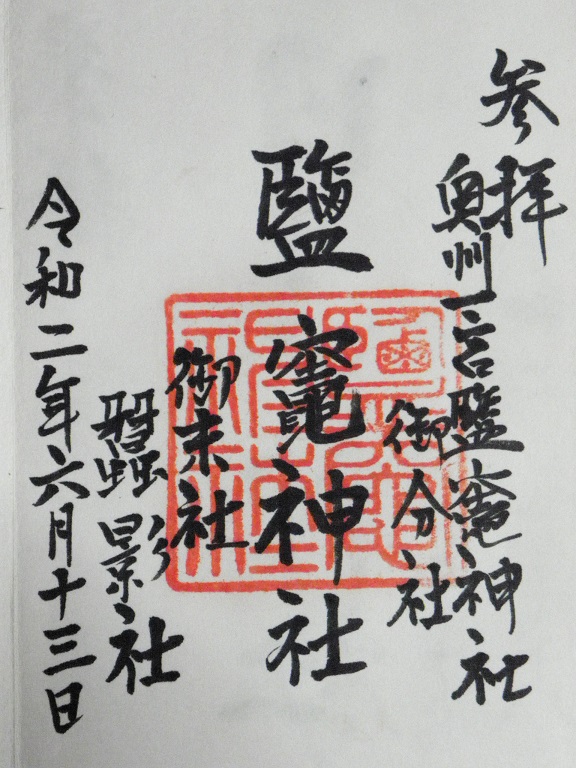 参拝
奥州一宮鹽竈神社
御分社
鹽竈神社
御末社
蠶影社
令和二年六月十三日